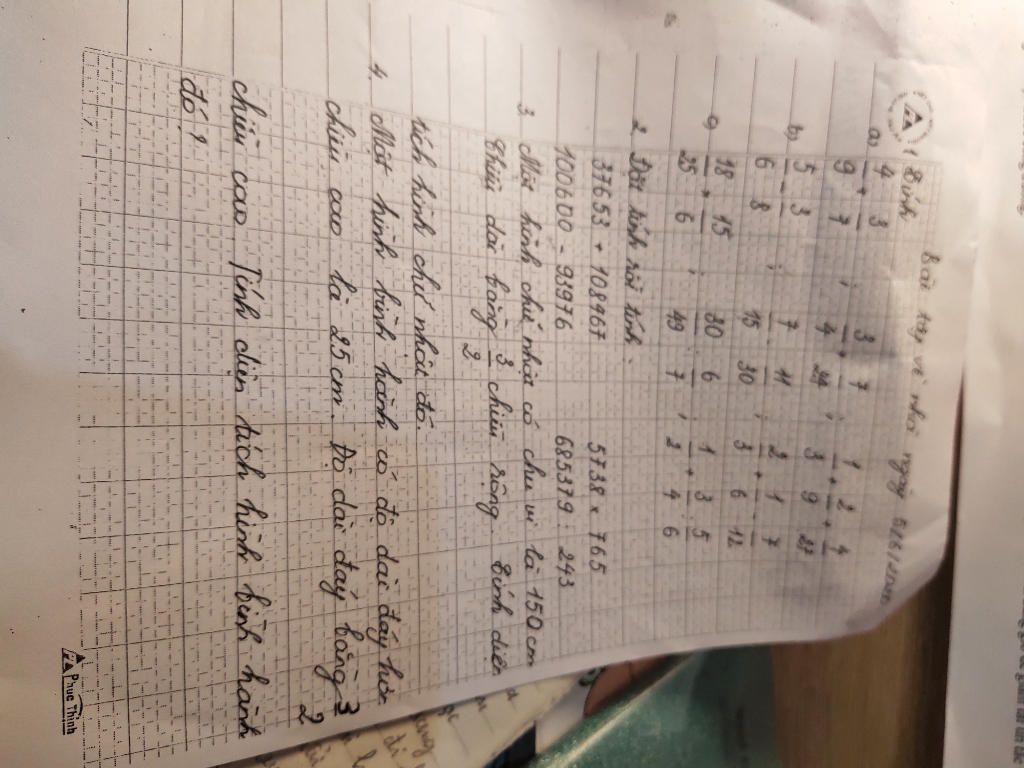 Bài tập về nhà ngày
1 Tính
a) 4/9 + 3/7 ; 3/4 + 7/24 ; 1/3 + 2/9 + 4/
b) 5/6 - 3/8 ; 7/15 - 11/30 ; 2/3 + 1/6 - 7/12
c) 18/25 × 15/6 ; 30/49 : 6/7 ; 1/2 + 3/4 × 5/6
2 Đặt tính rồi tính:
37653 + 108967 5738 x 765
100600 - 93976 685379 : 243
3 Một hình chữ nhật có chu vi là 150cm
Chiều dài bằng 3/2 chiều rộng. Tính diện
tích hình chữ nhật đó.
4. Một hình bình hành có độ dài đáy hơn
chiều cao là 25cm. Độ dài đáy bằng 3/2
chiều cao. Tính diện tích hình bình hành
đó?
Phuc Thinh